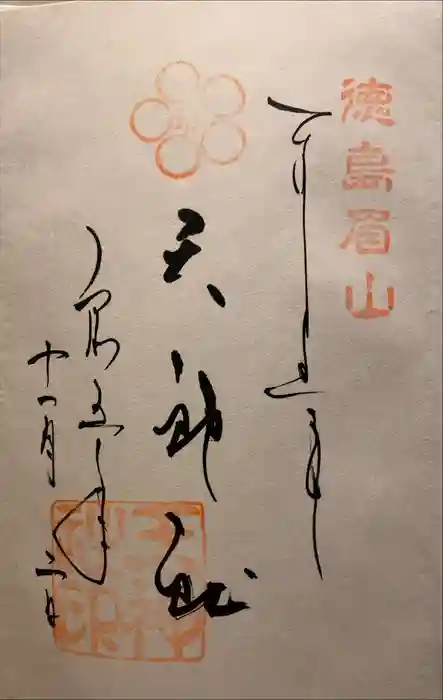 徳島眉山
奉拝
天神社
令和五年
十一月二日